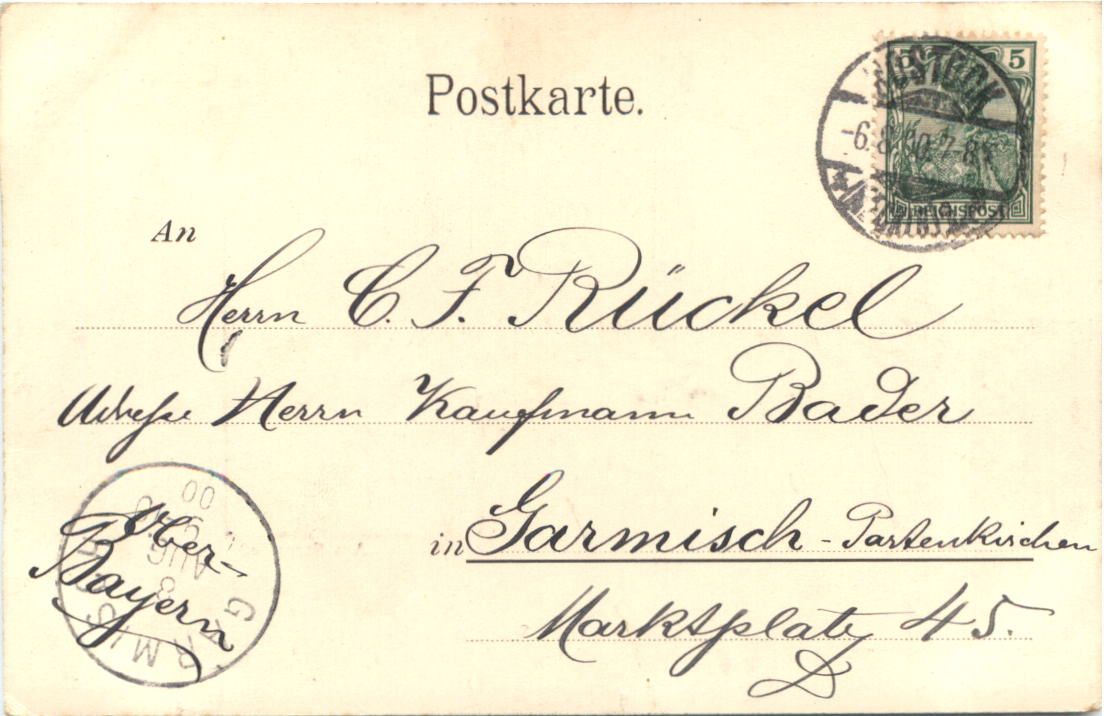 Postkarte.
5 5
ROSTOCK
-6.8.00. 7-8
REICHSPOST
An
Herrn C. F. Rückel
Adresse Herrn Kaufmann Bader
in Garmisch - Partenkirchen
Marktplatz 45.
Ober-
Bayern
GARMISCH
8
AUG
00